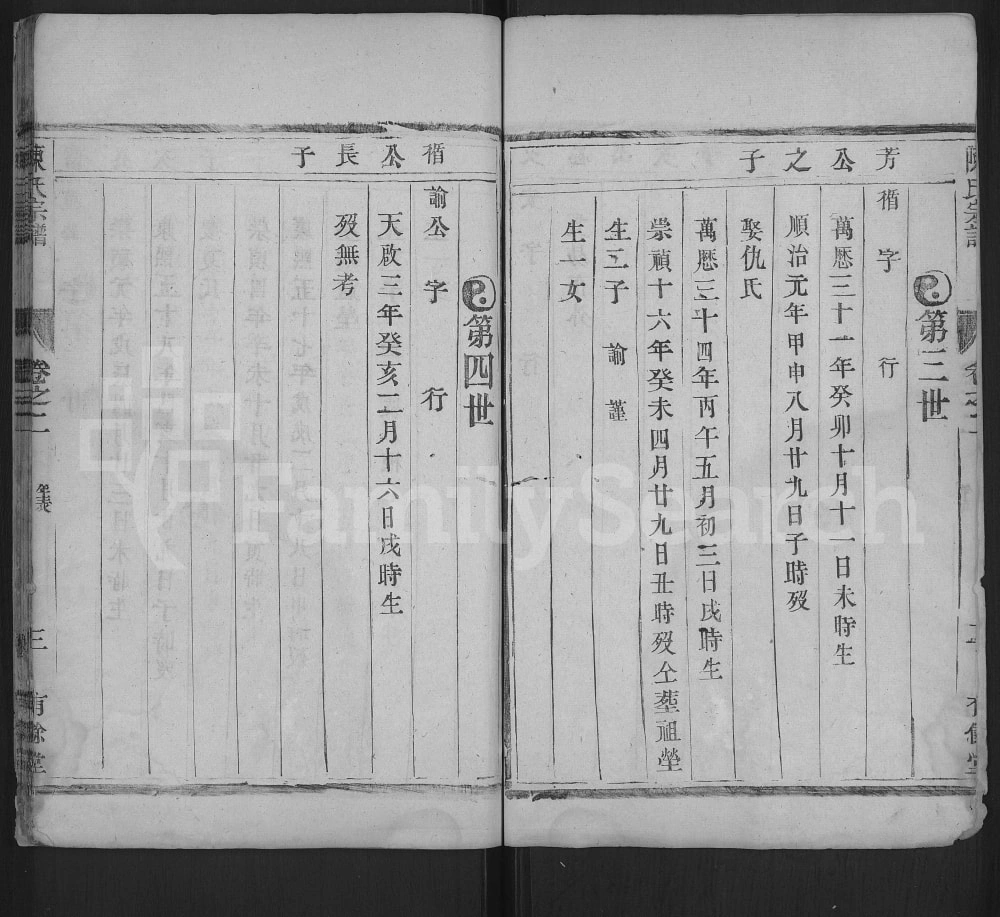 第三世
芳公之子
循字行
萬厯三十一年癸卯十月十一日未時生
順治元年甲申八月廿九日子時歿
娶仇氏
萬厯三十四年丙午五月初三日戌時生
崇禎十六年癸未四月廿九日丑時歿仝塟祖塋
生二子 諭 謹
生一女
第四世
循公長子
諭公字行
天啟三年癸亥二月十六日戌時生
歿無考
陳氏宗譜
卷之二
三
有餘堂
FamilySearch